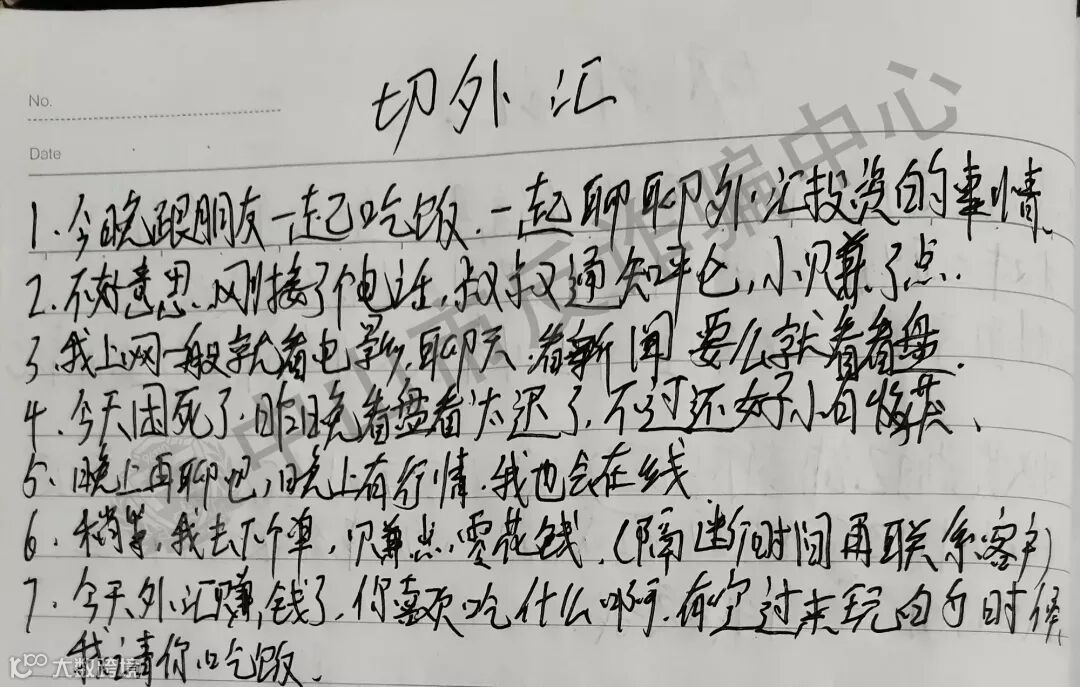 No.
切外汇
Date
1.今晚跟朋友一起吃饭.一起聊聊外汇投资的事情.
2.不好意思.刚接了个电话,叔叔通知平仓,小赚了点.
3.我上网一般就看电影,聊天.看新闻 要么就看看盘.
4.今天困死了.昨晚看盘看太迟了,不过还好小有收获、
5.晚上再聊吧,晚上有行情.我也会在线.
6.稍等,我去下个单,赚点零花钱.(隔断时间再联系客户)
7.今天外汇赚钱了.你喜欢吃什么啊.有空过来玩的时候,
我请你吃饭.
中山市反诈骗中心
大数跨境